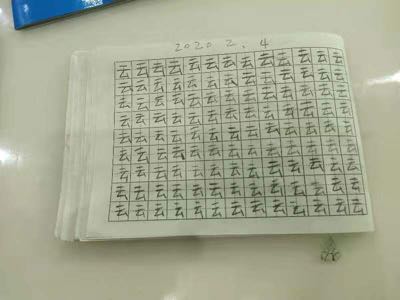 2020 2.4
云云云云云云云云云云云云云
云云云云云云云云云云云云云
云云云云云云云云云云云云云
云云云云云云云云云云云云云
云云云云云云云云云云云云云
云云云云云云云云云云云云云
云云云云云云云云云云云云云
云云云云云云云云云云云云云
云云云云云云云云云云云云云